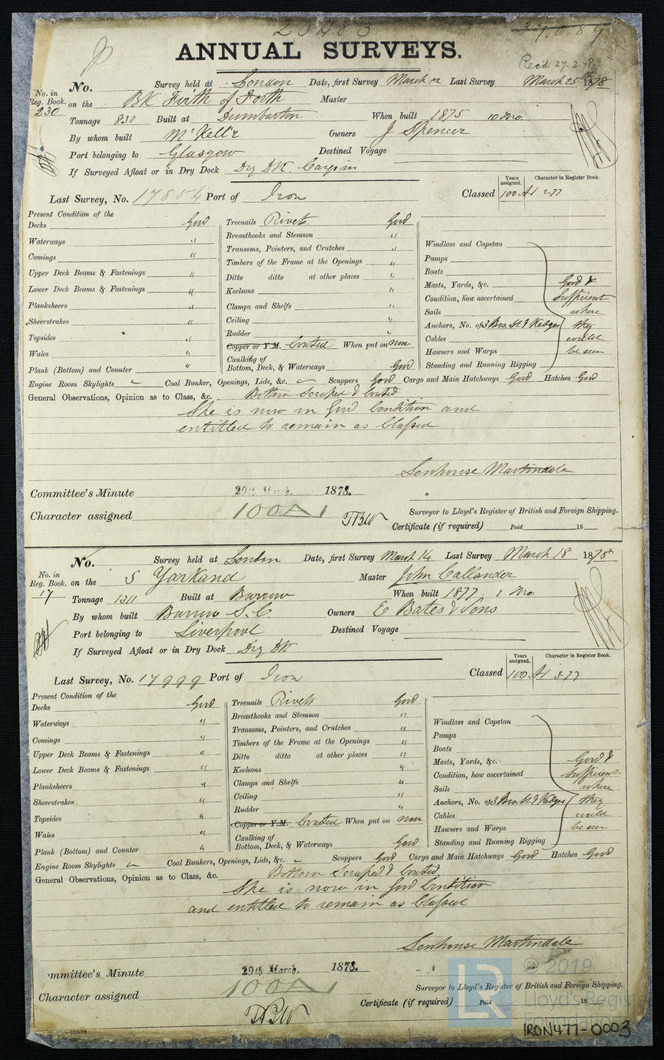 20483
Rec'd 27.3.78
ANNUAL SURVEYS.
No. Survey held at London Date, first Survey March 12 Last Survey March 25th 1878
No. in Reg. Book. on the Bk Firth of Forth Master
230 Tonnage 830 Built at Dumbarton When built 1875 10 Mo.
By whom built McKellr Owners J Spencer
Port belonging to Glasgow Destined Voyage
If Surveyed Afloat or in Dry Dock Dry Dk.
Last Survey, No. 17854 Port of Iron Classed
Years assigned. Character in Register Book.
100 A1 2.77
Present Condition of the
Decks Good
Waterways "
Comings "
Upper Deck Beams & Fastenings "
Lower Deck Beams & Fastenings "
Planksheers "
Sheerstrakes "
Topsides "
Wales "
Plank (Bottom) and Counter "
Treenails Rivets Good
Breasthooks and Stemson "
Transoms, Pointers, and Crutches "
Timbers of the Frame at the Openings "
Ditto ditto at other places "
Keelsons "
Clamps and Shelfs "
Ceiling "
Rudder "
Copper or Y.M. Coated When put on now
Caulking of
Bottom, Deck, & Waterways Good
Windlass and Capstan
Pumps
Boats
Masts, Yards, &c.
Condition, how ascertained
Sails
Anchors, No. of 3 Bro. St. & Kedge
Cables
Hawsers and Warps
Standing and Running Rigging
Good &
Sufficient
where
they
could
be seen
Engine Room Skylights Coal Bunker, Openings, Lids, &c. Scuppers Good Cargo and Main Hatchways Good Hatches Good
General Observations, Opinion as to Class, &c. Bottom Scraped & Coated
She is now in Good Condition and
entitled to remain as Classed
Senhouse Martindale
Committee's Minute 29th March. 1878.
Character assigned 100A1 Surveyor to Lloyd's Register of British and Foreign Shipping.
Certificate (if required) Paid 18
No. Survey held at London Date, first Survey March 14 Last Survey March 18 1878
No. in Reg. Book. on the S Yarkand Master John Callander
17 Tonnage 1311 Built at Barrow When built 1877 1 Mo.
By whom built Barrow S. C. Owners E Bates & Sons
Port belonging to Liverpool Destined Voyage
If Surveyed Afloat or in Dry Dock Dry Dk
Last Survey, No. 17999 Port of Iron Classed
Years assigned. Character in Register Book.
100 A1 3.77
Present Condition of the
Decks Good
Waterways "
Comings "
Upper Deck Beams & Fastenings "
Lower Deck Beams & Fastenings "
Planksheers "
Sheerstrakes "
Topsides "
Wales "
Plank (Bottom) and Counter "
Treenails Rivets Good
Breasthooks and Stemson "
Transoms, Pointers, and Crutches "
Timbers of the Frame at the Openings "
Ditto ditto at other places "
Keelsons "
Clamps and Shelfs "
Ceiling "
Rudder "
Copper or Y.M. Coated When put on now
Caulking of
Bottom, Deck, & Waterways Good
Windlass and Capstan
Pumps
Boats
Masts, Yards, &c.
Condition, how ascertained
Sails
Anchors, No. of 3 Bro. St. & Kedge
Cables
Hawsers and Warps
Standing and Running Rigging
Good &
Sufficient
where
they
could
be seen
Engine Room Skylights Coal Bunkers, Openings, Lids, &c. Scuppers Good Cargo and Main Hatchways Good Hatches Good
General Observations, Opinion as to Class, &c. Bottom Scraped & Coated
She is now in Good Condition
and entitled to remain as Classed
Senhouse Martindale
mmittee's Minute 29th March. 1878.
Character assigned 100A1 Surveyor to Lloyd's Register of British and Foreign Shipping.
Certificate (if required) Paid 18
LR @ 2019
Lloyd's Register
Foundation
IRON477-0003